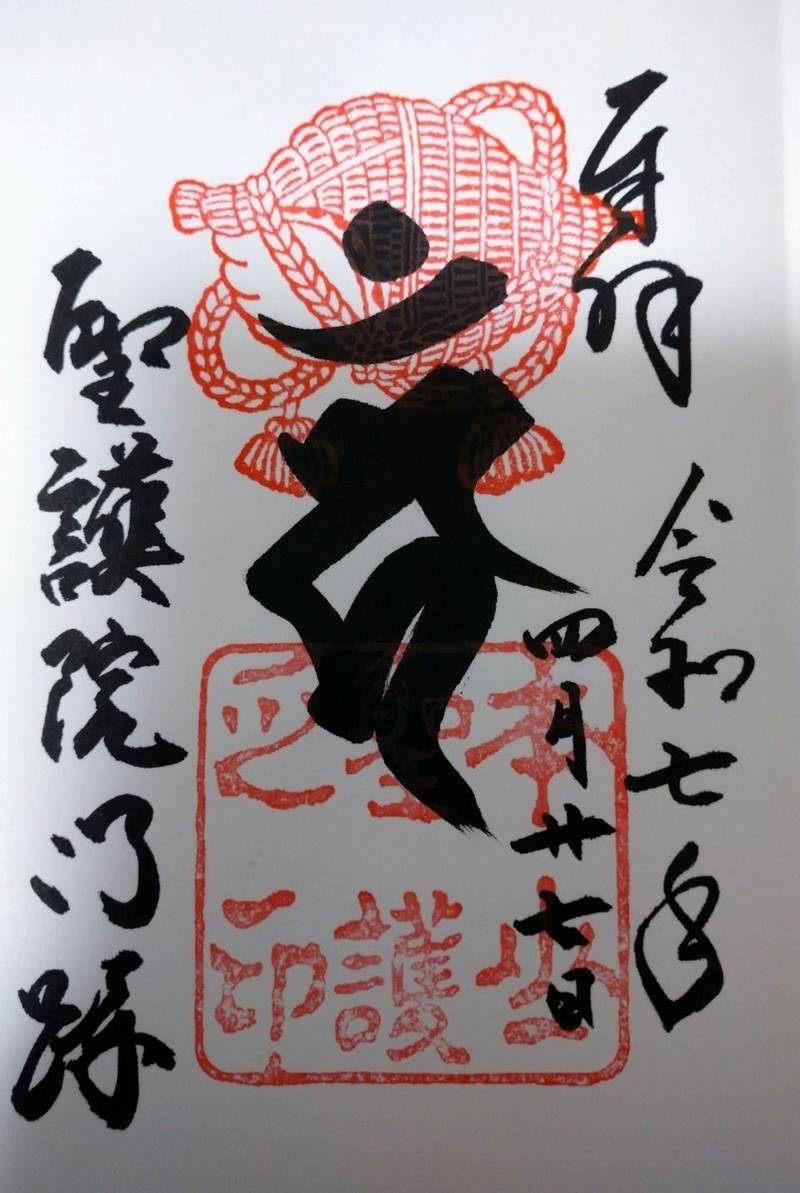 奉拝
令和七年
四月廿七日
聖護院門跡
本山
聖護
之印